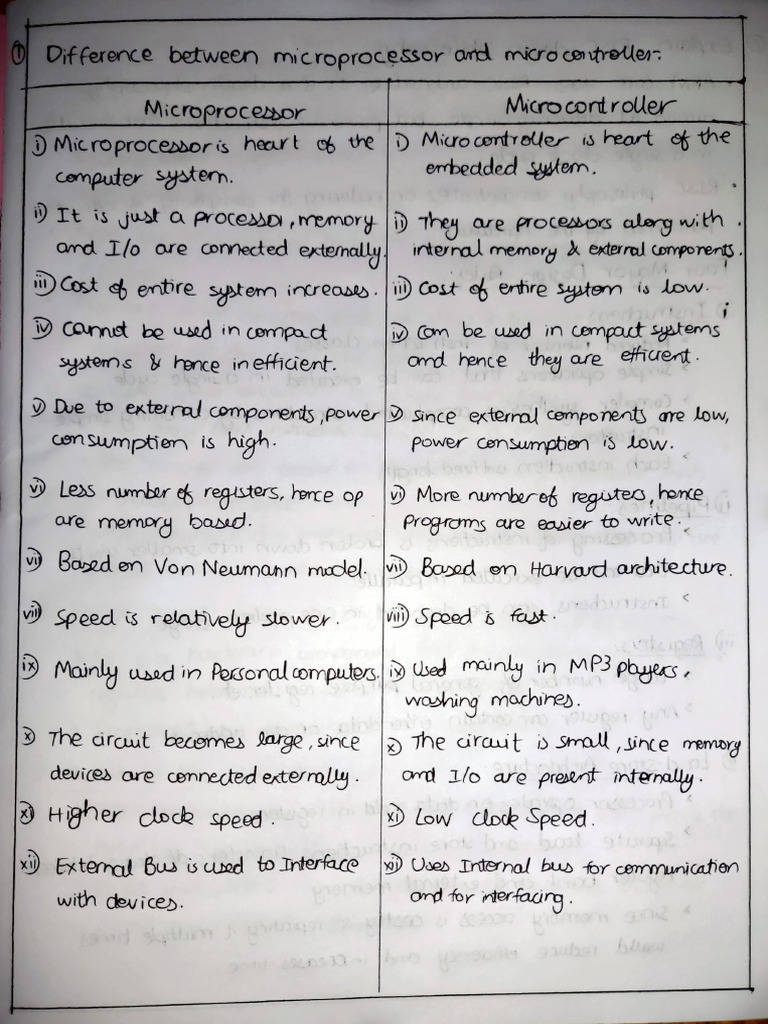 ① Difference between microprocessor and microcontroller:-
Microprocessor
i) Microprocessor is heart of the
computer system.
ii) It is just a processor, memory
and I/o are connected externally.
iii) Cost of entire system increases.
iv) Cannot be used in compact
systems & hence inefficient.
v) Due to external components, power
consumption is high.
vi) Less number of registers, hence op
are memory based.
vii) Based on Von Neumann model.
viii) Speed is relatively slower.
ix) Mainly used in Personal computers.
x) The circuit becomes large, since
devices are connected externally.
xi) Higher clock speed.
xii) External Bus is used to Interface
with devices.
Microcontroller
i) Microcontroller is heart of the
embedded system.
ii) They are processors along with
internal memory & external components.
iii) Cost of entire system is low.
iv) Can be used in compact systems
and hence they are efficient.
v) Since external components are low,
power consumption is low.
vi) More number of registers, hence
Programs are easier to write.
vii) Based on Harvard architecture.
viii) Speed is fast.
ix) Used mainly in MP3 players,
washing machines.
x) The circuit is small, since memory
and I/o are present internally.
xi) Low clock Speed.
xii) Uses Internal bus for communication
and for interfacing.